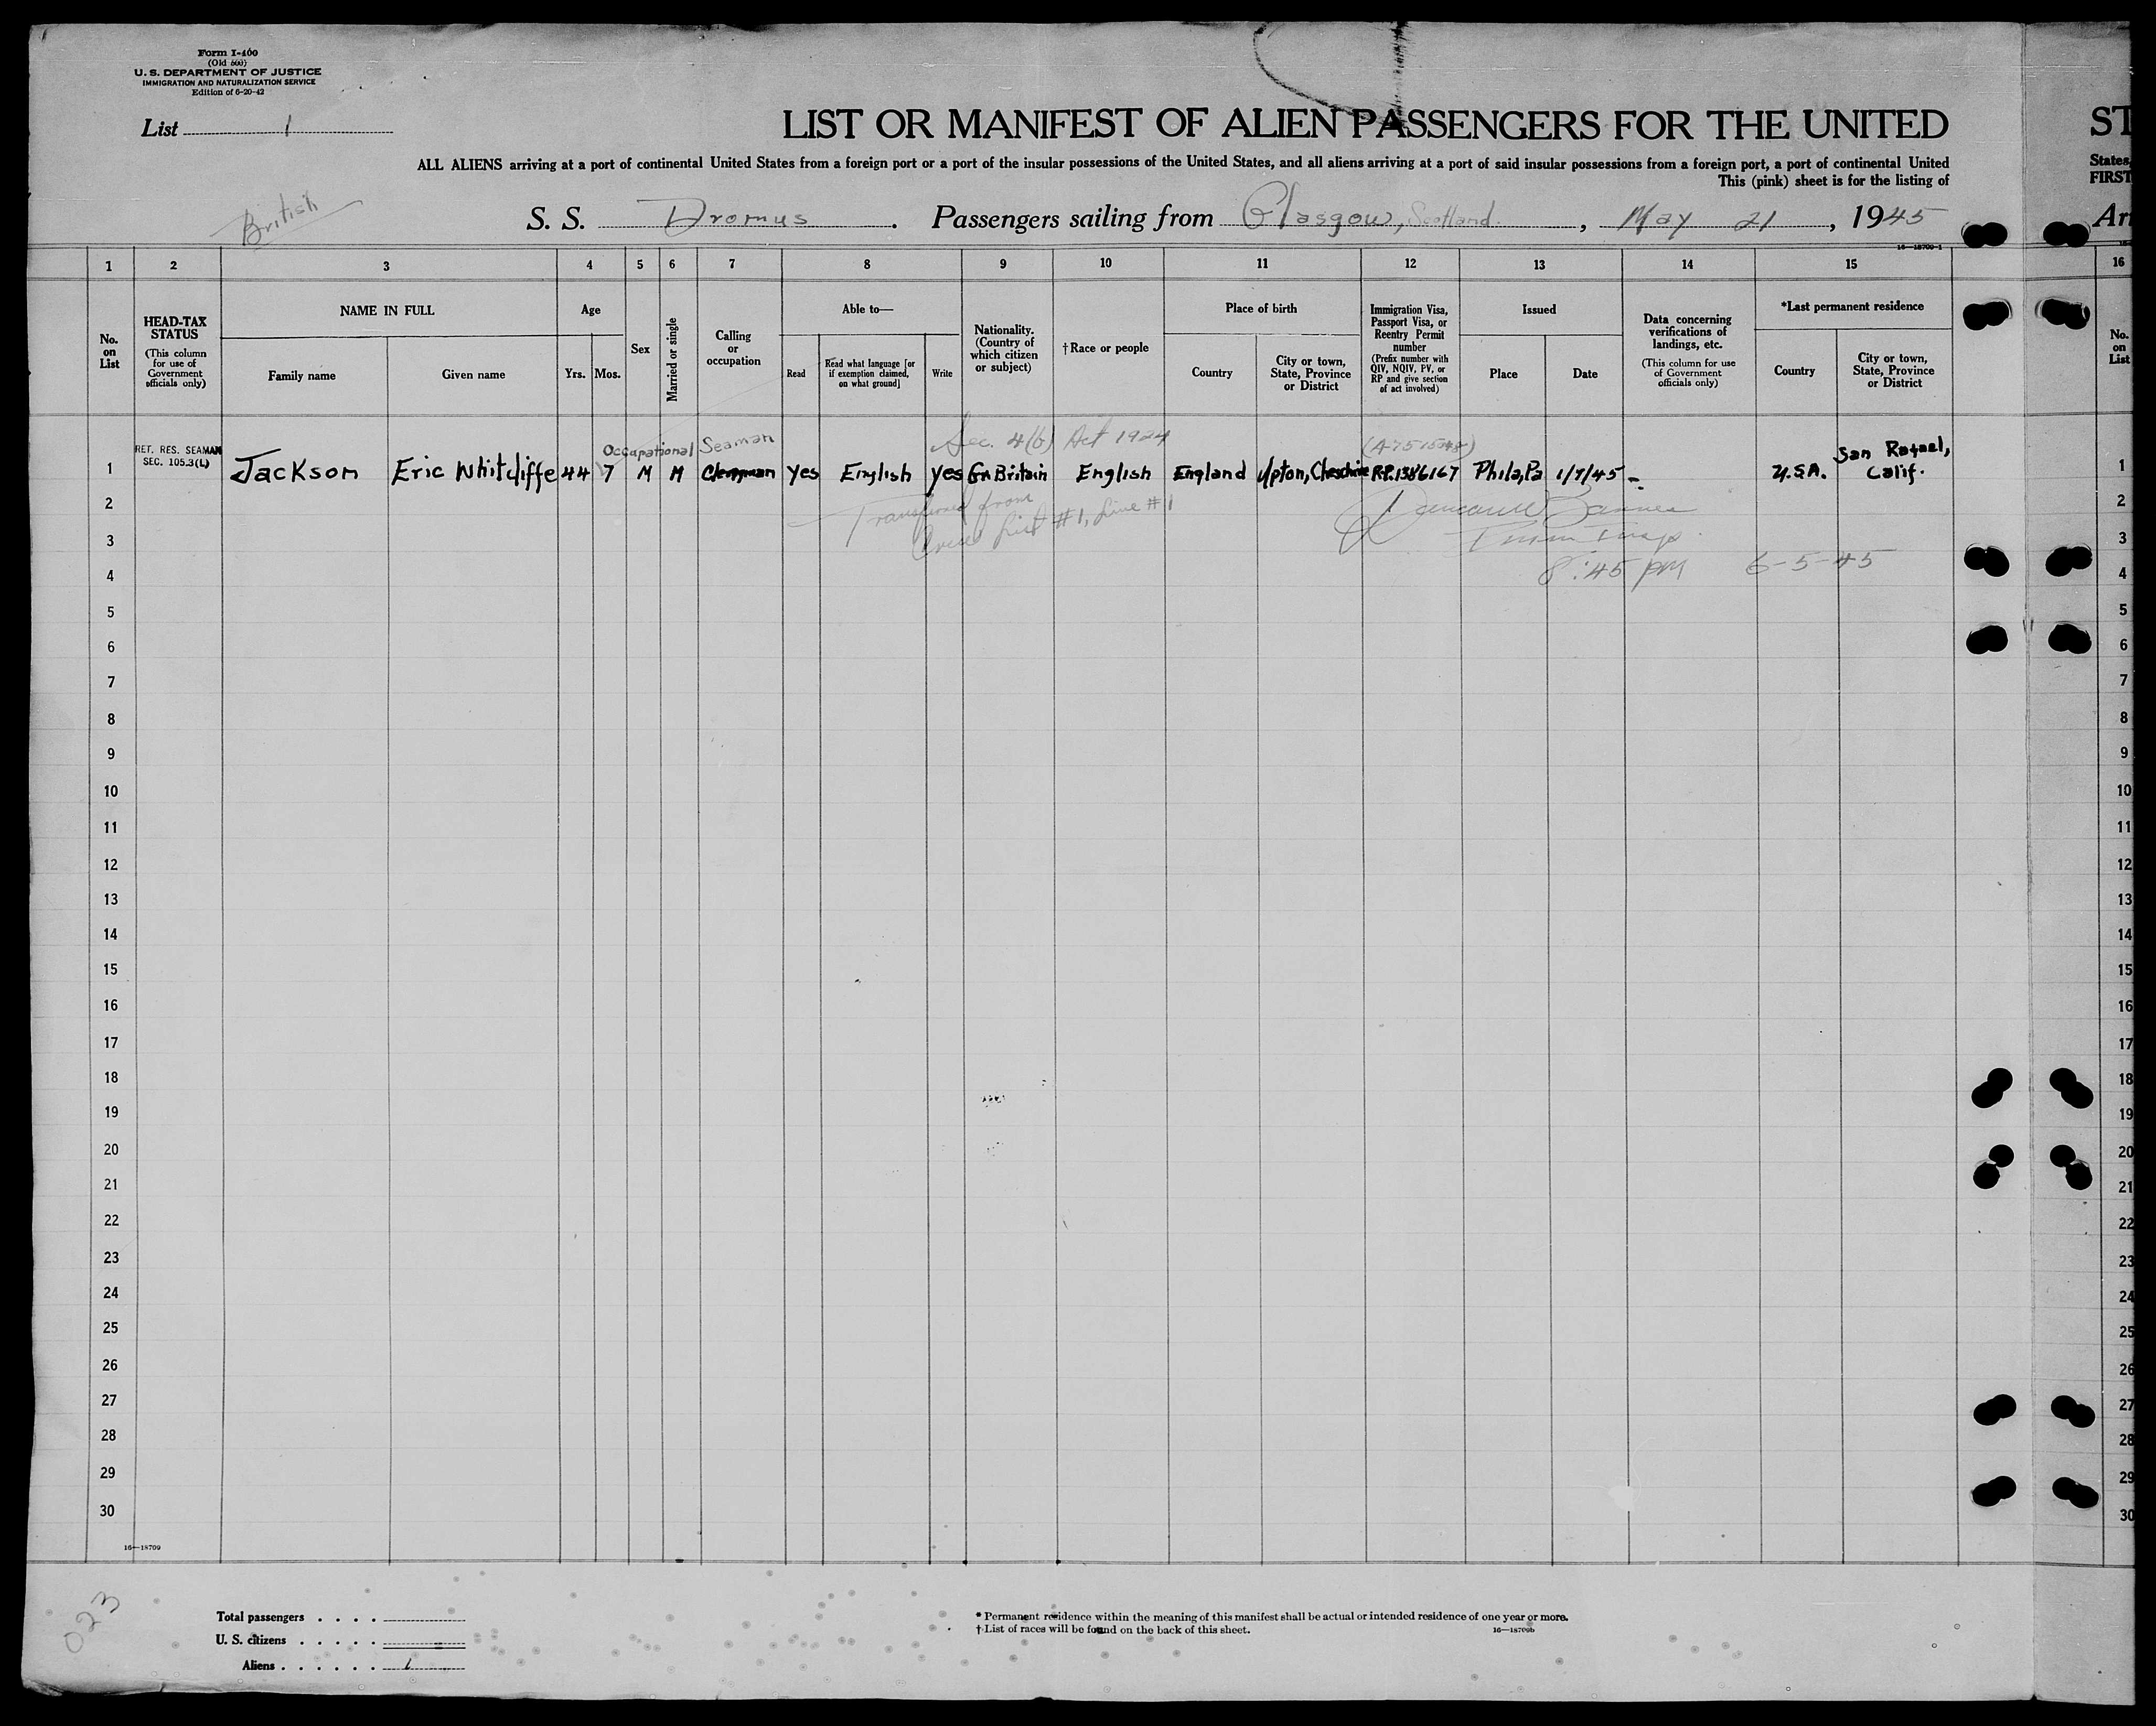 Form I-400
(Old 600)
U. S. DEPARTMENT OF JUSTICE
IMMIGRATION AND NATURALIZATION SERVICE
Edition of 6-20-42
List 1
LIST OR MANIFEST OF ALIEN PASSENGERS FOR THE UNITED
ST
ALL ALIENS arriving at a port of continental United States from a foreign port or a port of the insular possessions of the United States, and all aliens arriving at a port of said insular possessions from a foreign port, a port of continental United
States,
This (pink) sheet is for the listing of
FIRST
British
S. S. Dromus. Passengers sailing from Glasgow, Scotland, May 21, 1945
Arr
16—18709-1
1 2 3 4 5 6 7 8 9 10 11 12 13 14 15 16
No. on List
HEAD-TAX STATUS
(This column for use of Government officials only)
NAME IN FULL
Family name
Given name
Age
Yrs. Mos.
Sex
Married or single
Calling or occupation
Able to—
Read
Read what language [or if exemption claimed, on what ground]
Write
Nationality. (Country of which citizen or subject)
†Race or people
Place of birth
Country
City or town, State, Province or District
Immigration Visa, Passport Visa, or Reentry Permit number
(Prefix number with QIV, NQIV, PV, or RP and give section of act involved)
Issued
Place
Date
Data concerning verifications of landings, etc.
(This column for use of Government officials only)
*Last permanent residence
Country
City or town, State, Province or District
No. on List
Occupational Seaman
Sec. 4(b) Act 1924
RET. RES. SEAMAN
SEC. 105.3(L)
1 Jackson Eric Whitcliffe 44 7 M M Clergyman Yes English yes Gr. Britain English England Upton, Cheshire RP.1386167 Phila, Pa 1/7/45 - U.S.A. San Rafael, Calif. 1
Transferred from
Crew List #1, Line #1
8:45 PM 6-5-45
2 2
3 3
4 4
5 5
6 6
7 7
8 8
9 9
10 10
11 11
12 12
13 13
14 14
15 15
16 16
17 17
18 18
19 19
20 20
21 21
22 22
23 23
24 24
25 25
26 26
27 27
28 28
29 29
30 30
16—18709
023
Total passengers . . . .
U. S. citizens . . . . .
Aliens . . . . . . 1
* Permanent residence within the meaning of this manifest shall be actual or intended residence of one year or more.
† List of races will be found on the back of this sheet.
16—18709b